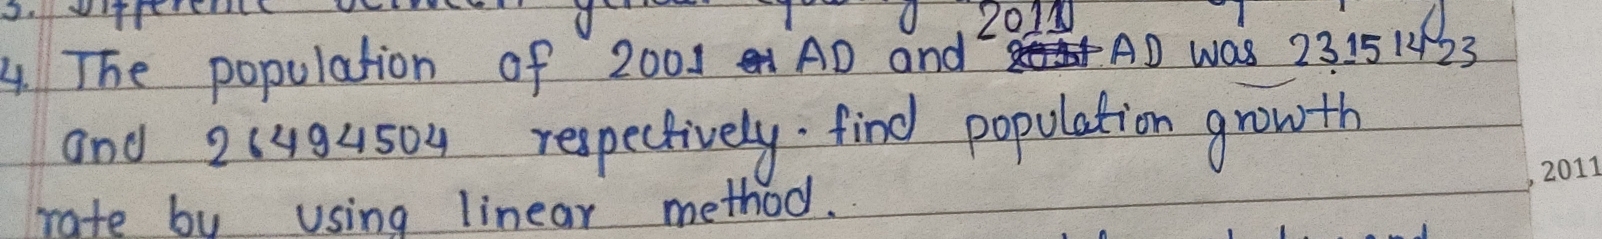 3. Difference between
2011
4. The population of 2001 AD and AD was 23151423
and 26494504 respectively. find population growth
, 2011
rate by using linear method.
and